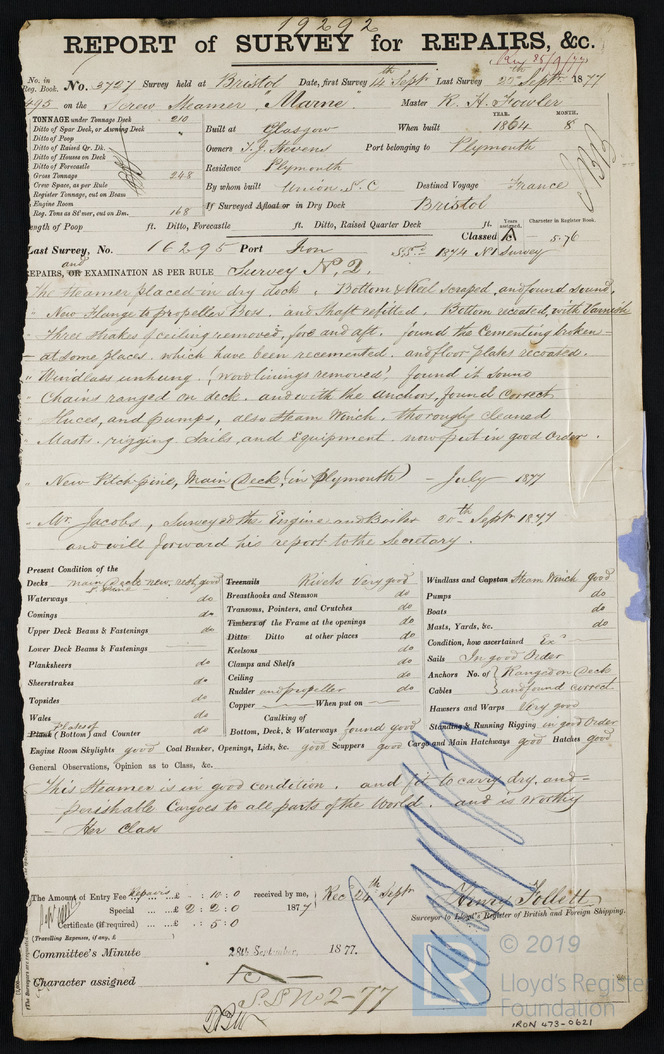 19292
REPORT of SURVEY for REPAIRS, &c.
No. in Reg. Book. No. 3727 Survey held at Bristol Date, first Survey 14th Sept Last Survey 25th Sept 1877
495 on the Screw Steamer "Marne" Master R. H. Fowler
TONNAGE under Tonnage Deck 210
Ditto of Spar Deck, or Awning Deck "
Ditto of Poop
Ditto of Raised Qr. Dk.
Ditto of Houses on Deck
Ditto of Forecastle
Gross Tonnage 248
Crew Space, as per Rule
Register Tonnage, cut on Beam
Engine Room
Reg. Tons as St'mer, cut on Bm. 168
Built at Glasgow When built YEAR. 1864 MONTH. 8
Owners T. J. Stevens Port belonging to Plymouth
Residence Plymouth
By whom built Union S. C Destined Voyage France
If Surveyed Afloat or in Dry Dock Bristol
Length of Poop ft. Ditto, Forecastle ft. Ditto, Raised Quarter Deck ft. Years assigned. Character in Register Book.
Classed A 5.76
Last Survey, No. 16295 Port Iron SS. 1874 No 1 Survey
REPAIRS, and OR EXAMINATION AS PER RULE Survey No. 2.
The Steamer placed in dry dock. Bottom & Keel scraped, and found sound,
" New flange to propeller Boss. and Shaft refitted. Bottom recoated, with Varnish
" Three strakes of ceiling removed, fore and aft. found the Cementing broken
at some places. which have been recemented. and floor plates recoated.
" Windlass unhung. (wood linings removed) found it sound
" Chains ranged on deck. and with the anchors, found correct
" Sluces, and pumps, also Steam Winch. thoroughly cleaned
" Masts. rigging Sails and Equipment. now put in good Order.
" New Pitch pine, Main Deck (in Plymouth) - July 1877
" Mr Jacobs, Surveyed the Engine and Boiler 25th Sept 1877
and will forward his report to the Secretary.
Present Condition of the
Decks main Deck new, rest good
Waterways do
Comings do
Upper Deck Beams & Fastenings do
Lower Deck Beams & Fastenings
Planksheers do
Sheerstrakes do
Topsides do
Wales do
Plank Plates of (Bottom) and Counter do
Treenails Rivets Very good
Breasthooks and Stemson do
Transoms, Pointers, and Crutches do
Timbers of the Frame at the openings do
Ditto Ditto at other places do
Keelsons do
Clamps and Shelfs do
Ceiling do
Rudder and propeller do
Copper When put on
Caulking of
Bottom, Deck, & Waterways found good
Windlass and Capstan Steam Winch good
Pumps do
Boats do
Masts, Yards, &c. do
Condition, how ascertained Exn
Sails In good Order
Anchors No. of Ranged on Deck
Cables and found correct
Hawsers and Warps Very good
Standing & Running Rigging in good Order
Engine Room Skylights good Coal Bunker, Openings, Lids, &c. good Scuppers good Cargo and Main Hatchways good Hatches good
General Observations, Opinion as to Class, &c.
This Steamer is in good condition. and fit to carry dry, and
perishable Cargoes to all parts of the World. and is worthy
Her Class
The Amount of Entry Fee Repairs £ : 10 : 0 received by me,
Special £ 2 : 2 : 0 1877
Certificate (if required) £ : 5 : 0
(Travelling Expenses, if any, £
Rec 24th Sept
Henry Follett
Surveyor to Lloyd's Register of British and Foreign Shipping.
Committee's Minute 28th September, 1877.
Character assigned
S.S No 2-77
© 2019
Lloyd's Register
Foundation
IRON 473-0621